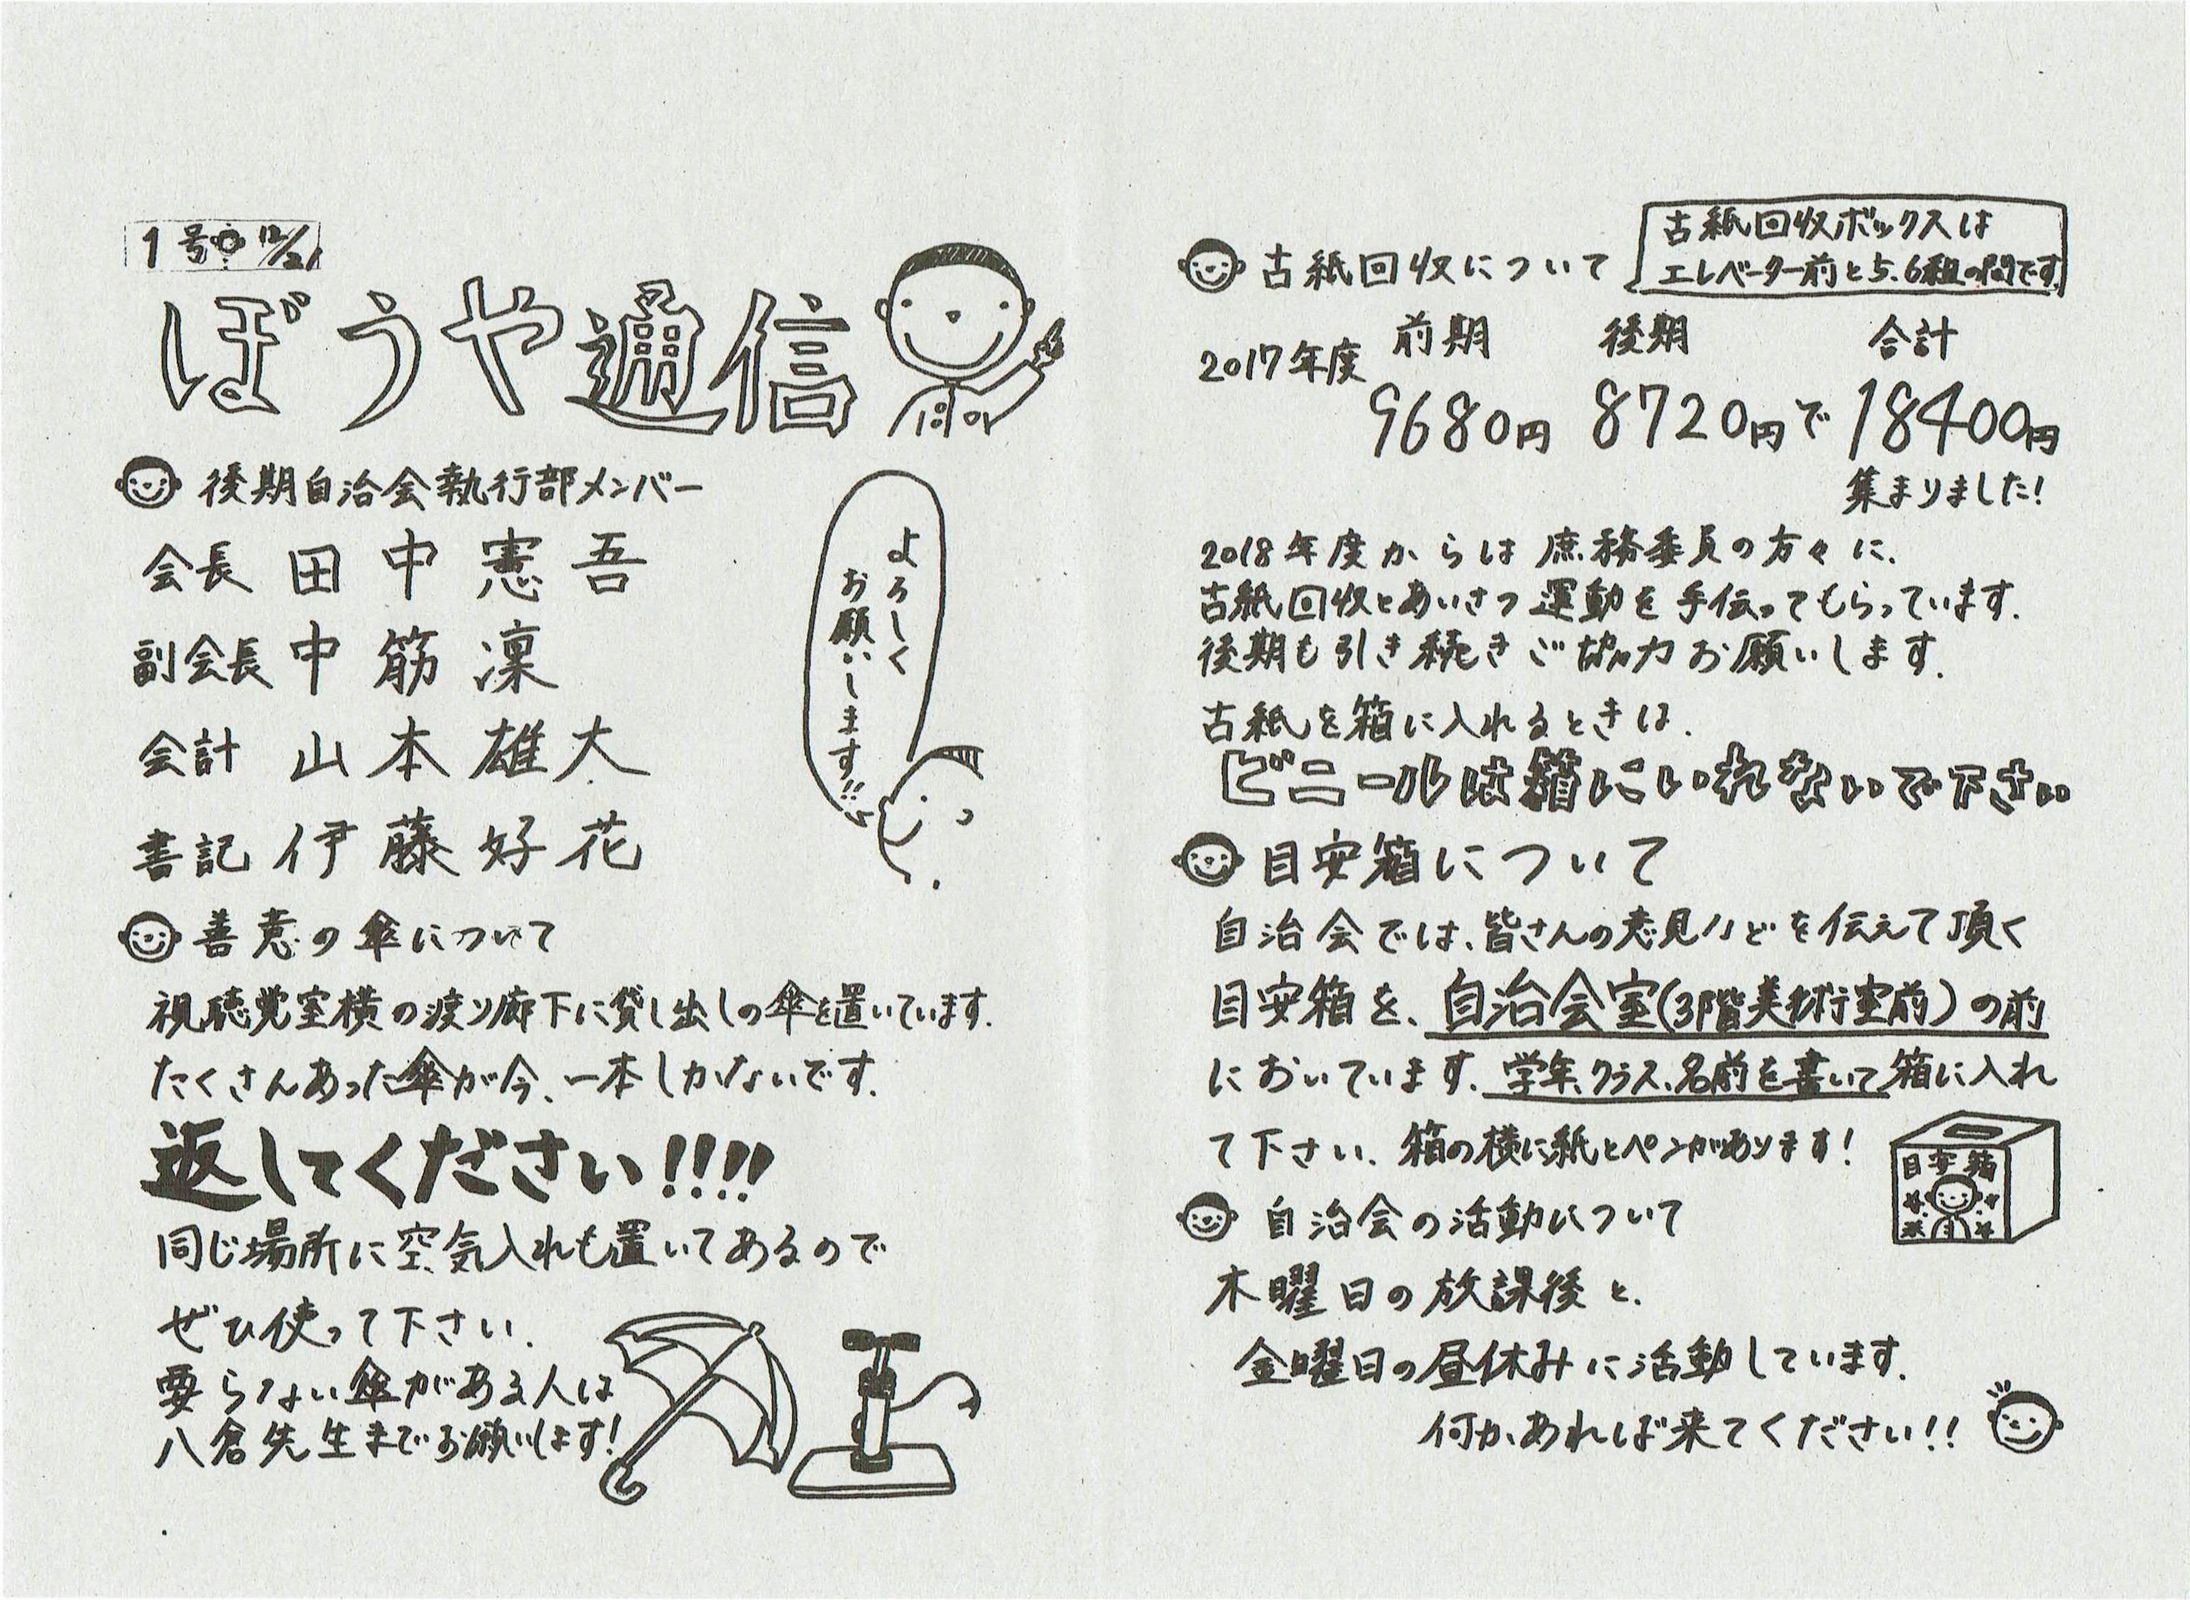 1号 12/21
ぼうや通信
後期自治会執行部メンバー
会長 田中憲吾
副会長 中筋凜
会計 山本雄大
書記 伊藤好花
よろしく
お願いします!!
善意の傘について
視聴覚室横の渡り廊下に貸し出しの傘を置いています.
たくさんあった傘が今、一本しかないです.
返してください!!!!
同じ場所に空気入れも置いてあるので
ぜひ使って下さい.
要らない傘がある人は
八倉先生までお願いします!
古紙回収について
古紙回収ボックスは
エレベーター前と5、6組の間です.
前期 後期 合計
2017年度 9680円 8720円で 18400円
集まりました!
2018年度からは庶務委員の方々に、
古紙回収とあいさつ運動を手伝ってもらっています.
後期も引き続きご協力お願いします.
古紙を箱に入れるときは、
ビニールは箱にいれないで下さい
目安箱について
自治会では、皆さんの意見などを伝えて頂く
目安箱を、自治会室(3階美術室前)の前
においています. 学年、クラス、名前を書いて箱に入れ
て下さい. 箱の横に紙とペンがあります!
目安箱
自治会の活動について
木曜日の放課後と、
金曜日の昼休みに活動しています.
何かあれば来てください!!